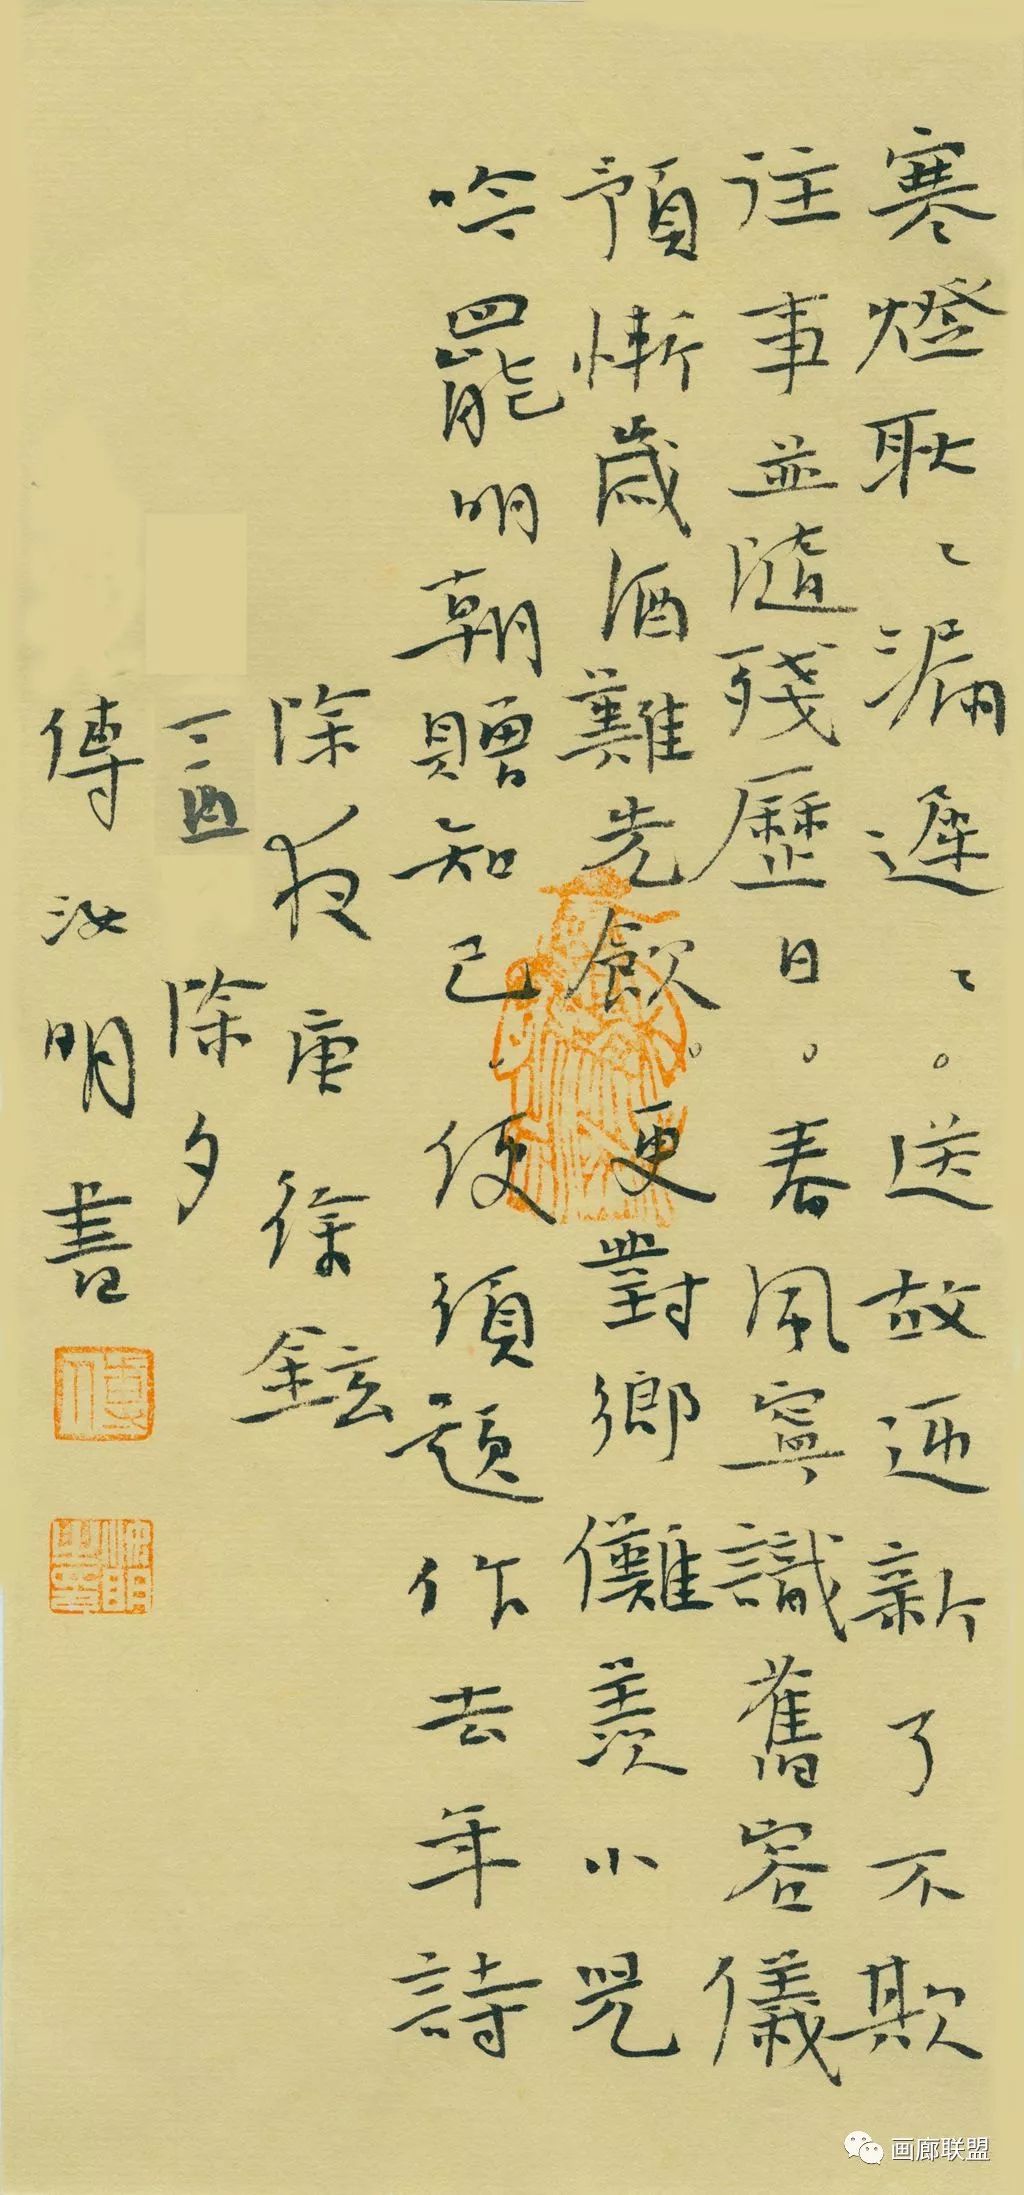 寒燈耿〻漏遲〻。送故迎新了不欺
往事並隨殘歷日。春風寧識舊容儀
預慚歲酒難先飲。更對鄉儺羨小兒
吟罷明朝贈知己。便須題作去年詩
除夜 唐 徐鉉
丁酉 除夕
傅汝明書
画廊联盟